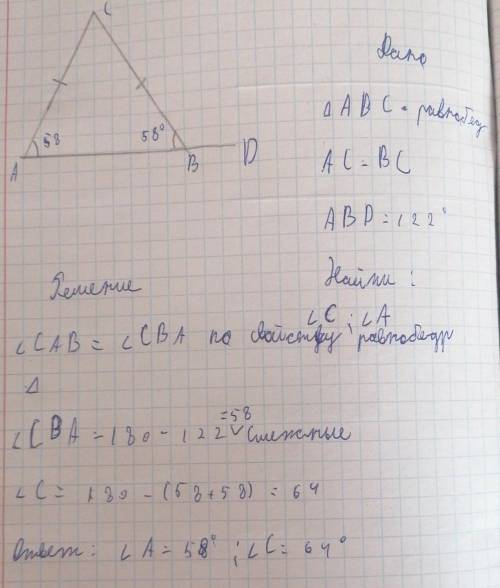 C
58
58°
A
B
D
Дано
Δ ABC - равнобед
AC = BC
ABD = 122°
Найти :
∠C ; ∠A
Решение
∠CAB = ∠CBA по свойству равнобедр
Δ
∠CBA = 180 - 122 =58 Смежные
∠C = 180 - (58+58) = 64
Ответ : ∠A = 58° ; ∠C = 64°